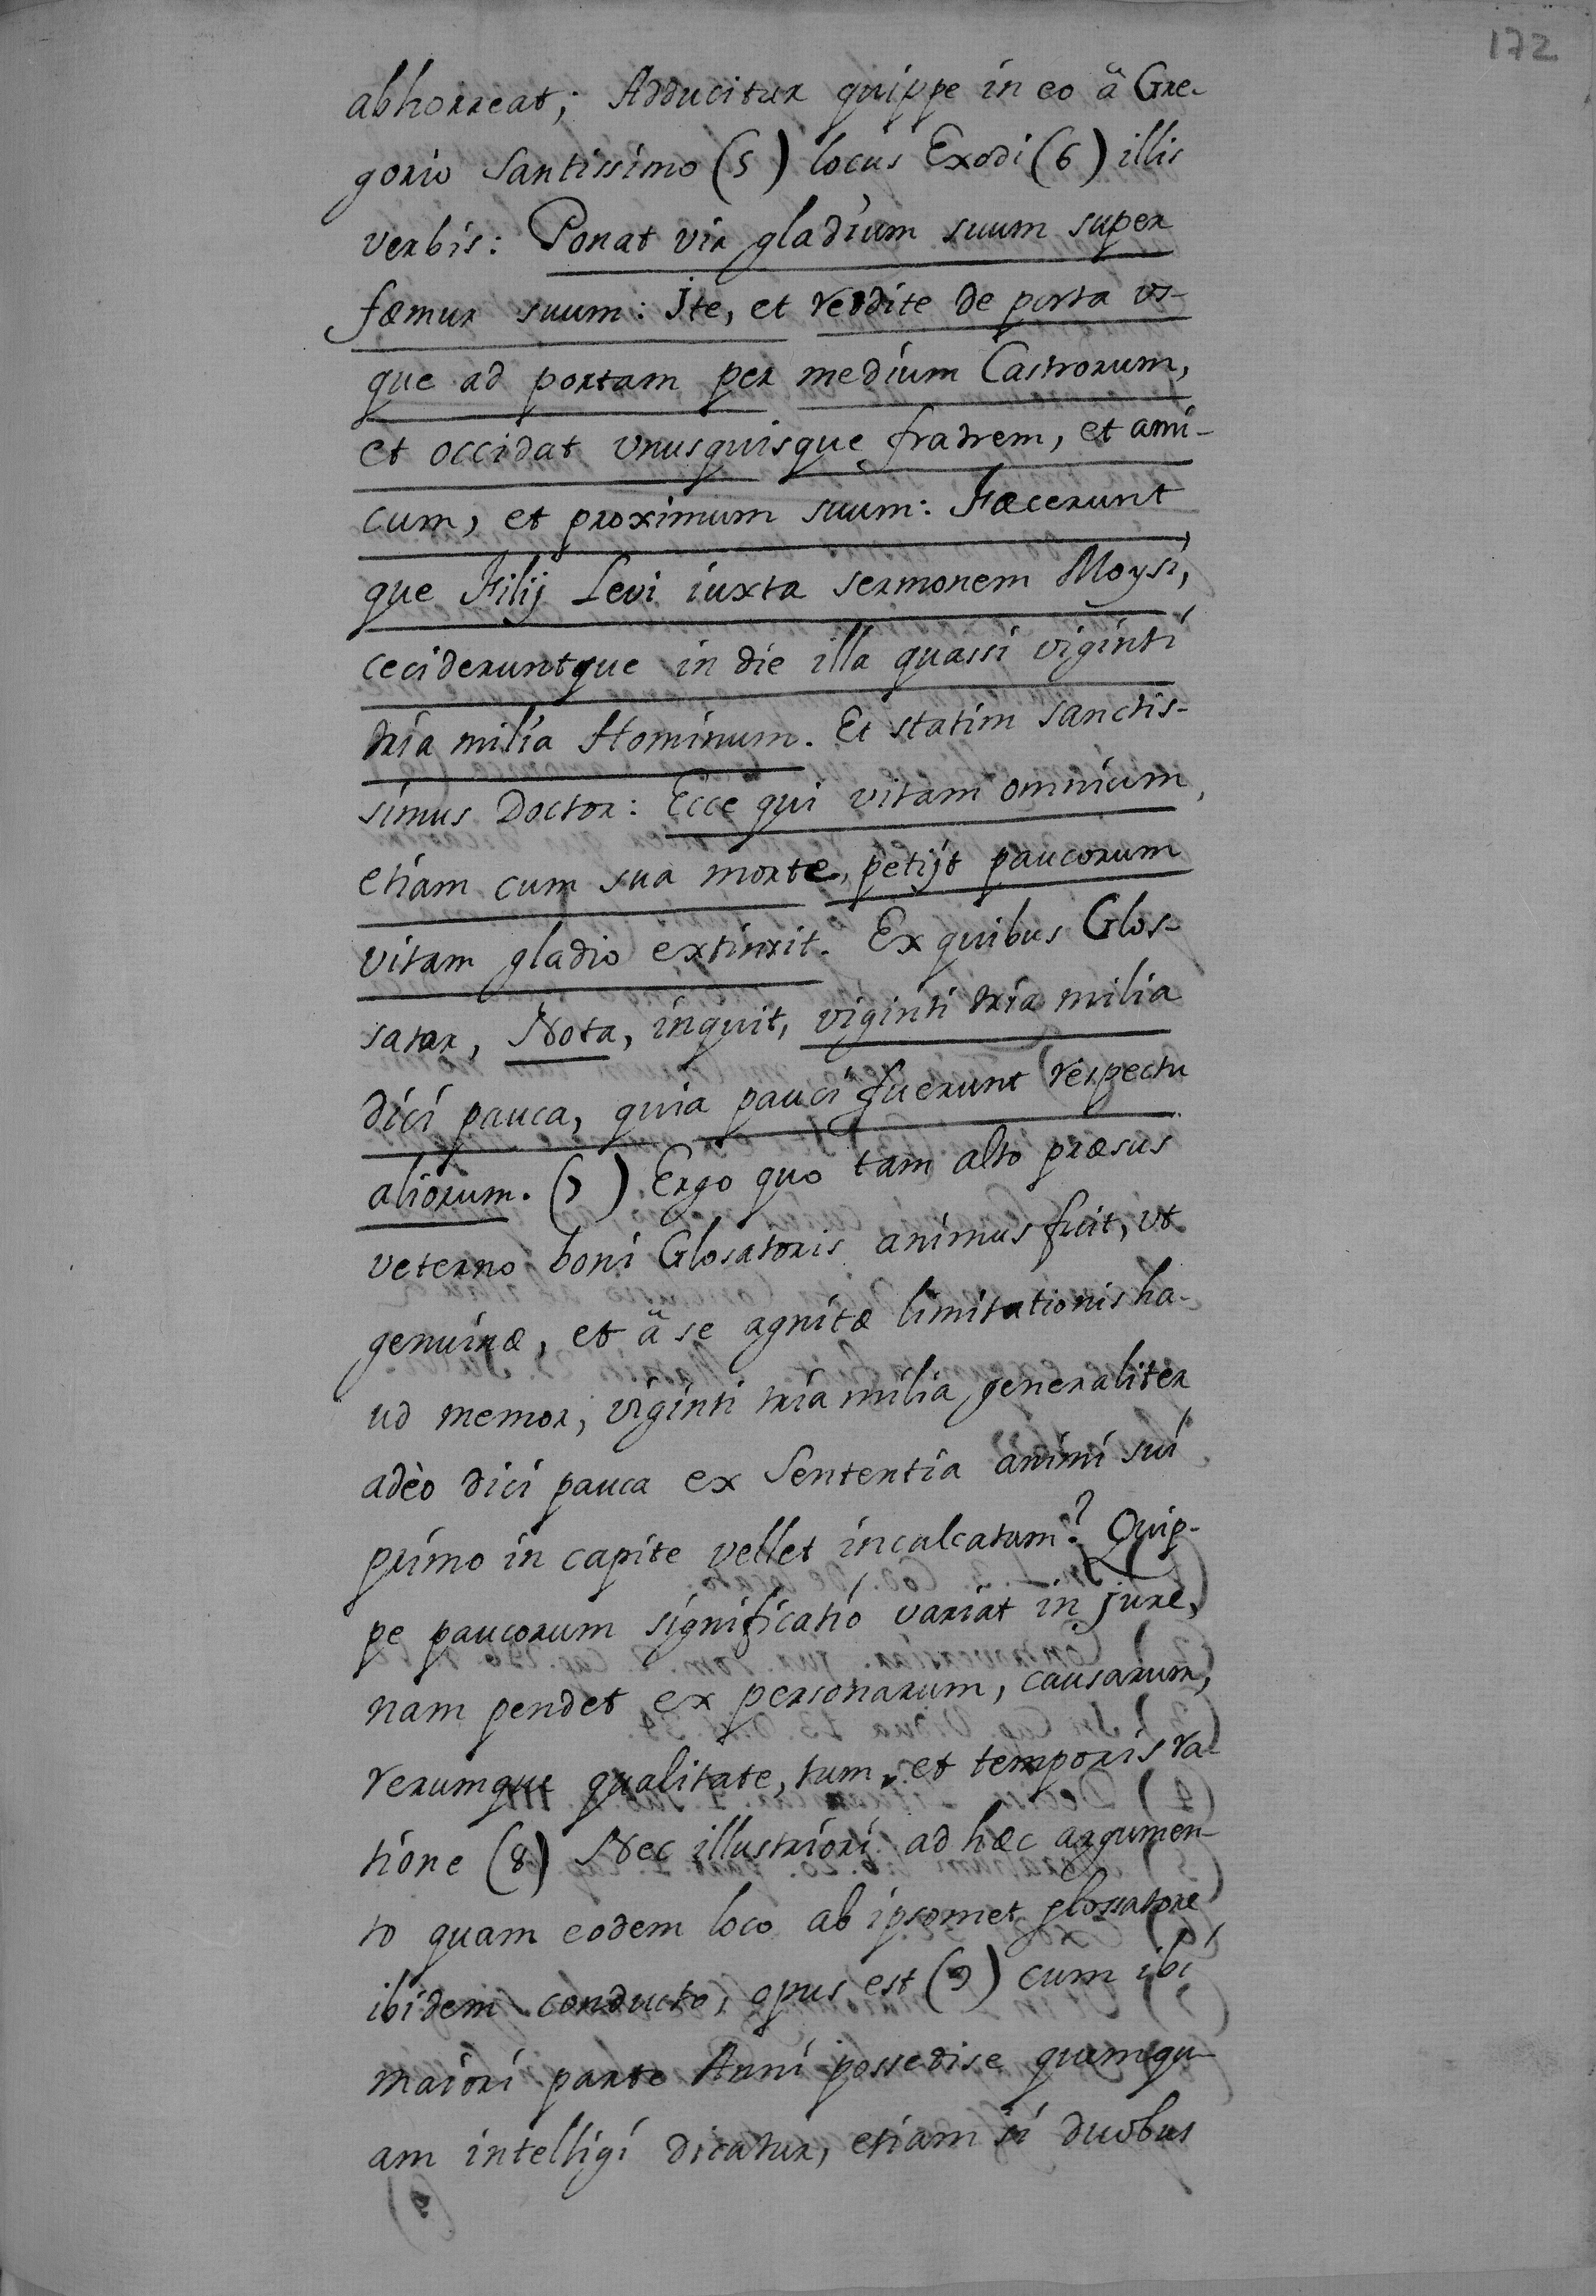 172
abhorreat; Adducitur quippe in eo â Gre-
gorio Santissimo (5) locus Exodi (6) illis
verbis: Ponat vir gladium suum super
fæmur suum: Ite, et reddite de porta vs-
que ad portam per medium Castrorum,
et occidat vnusquisque fratrem, et ami-
cum, et proximum suum: Fæcerunt
que Filij Levi iuxta sermonem Moysi,
cecideruntque in die illa quassi viginti
tria milia Hominum. Et statim sanctis-
simus Doctor: Ecce qui vitam omnium,
etiam cum sua morte, petijt paucorum
vitam gladio extinxit. Ex quibus Glos-
sator, Nota, inquit, viginti tria milia
dici pauca, quia pauci fuerunt respectu
aliorum. (7) Ergo quo tam alto præsus
veterno boni Glosatoris animus fuit, vt
genuinæ, et â se agnitæ limitationis ha-
ud memor, viginti tria milia generaliter
adèo dici pauca ex Sententia animi sui
primo in capite vellet inculcatum? Quip-
pe paucorum significatio variat in jure,
nam pendet ex personarum, causarum,
rerumque qualitate, tum, et temporis ra-
tione (8) Nec illustriori ad hæc argumen-
to quam eodem loco ab ipsomet glossatore
ibidem conducto, opus est (9) cum ibi
maiori parte Anni possedise quemqu-
am intelligi dicatur, etiam si duobus